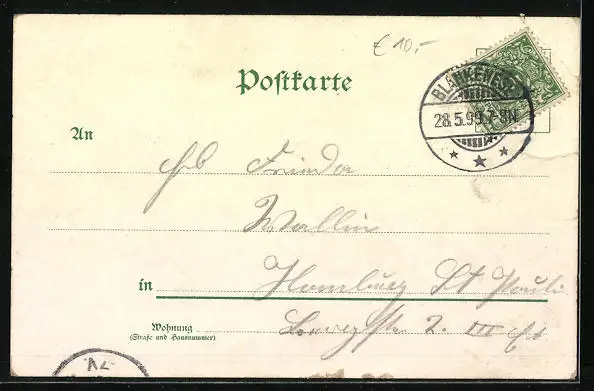 € 10,-
Postkarte
BLANKENESE
28.5.99.7-8N
An
Frieda
Wallin
in Hamburg St Pauli
Wohnung
(Straße und Hausnummer)
2. III